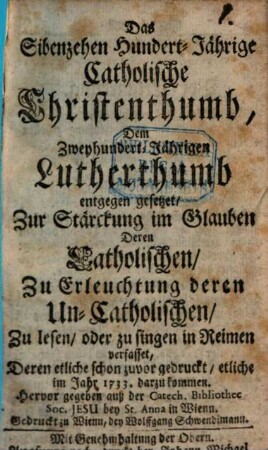 Das
Sibenzehen Hundert-Jährige
Catholische
Christenthumb,
Dem
Zweyhundert-Jährigen
Lutherthumb
entgegen gesetzet/
Zur Stärckung im Glauben
Deren
Catholischen/
Zu Erleuchtung deren
Un-Catholischen/
Zu lesen/ oder zu singen in Reimen
verfasset,
Deren etliche schon zuvor gedruckt, etliche
im Jahr 1733. darzu kommen.
Hervor gegeben auß der Catech. Bibliothec
Soc. JESU bey St. Anna in Wienn.
Gedruckt zu Wienn, bey Wolffgang Schwendimann.
Mit Genehmhaltung der Obern.
Johann Michael